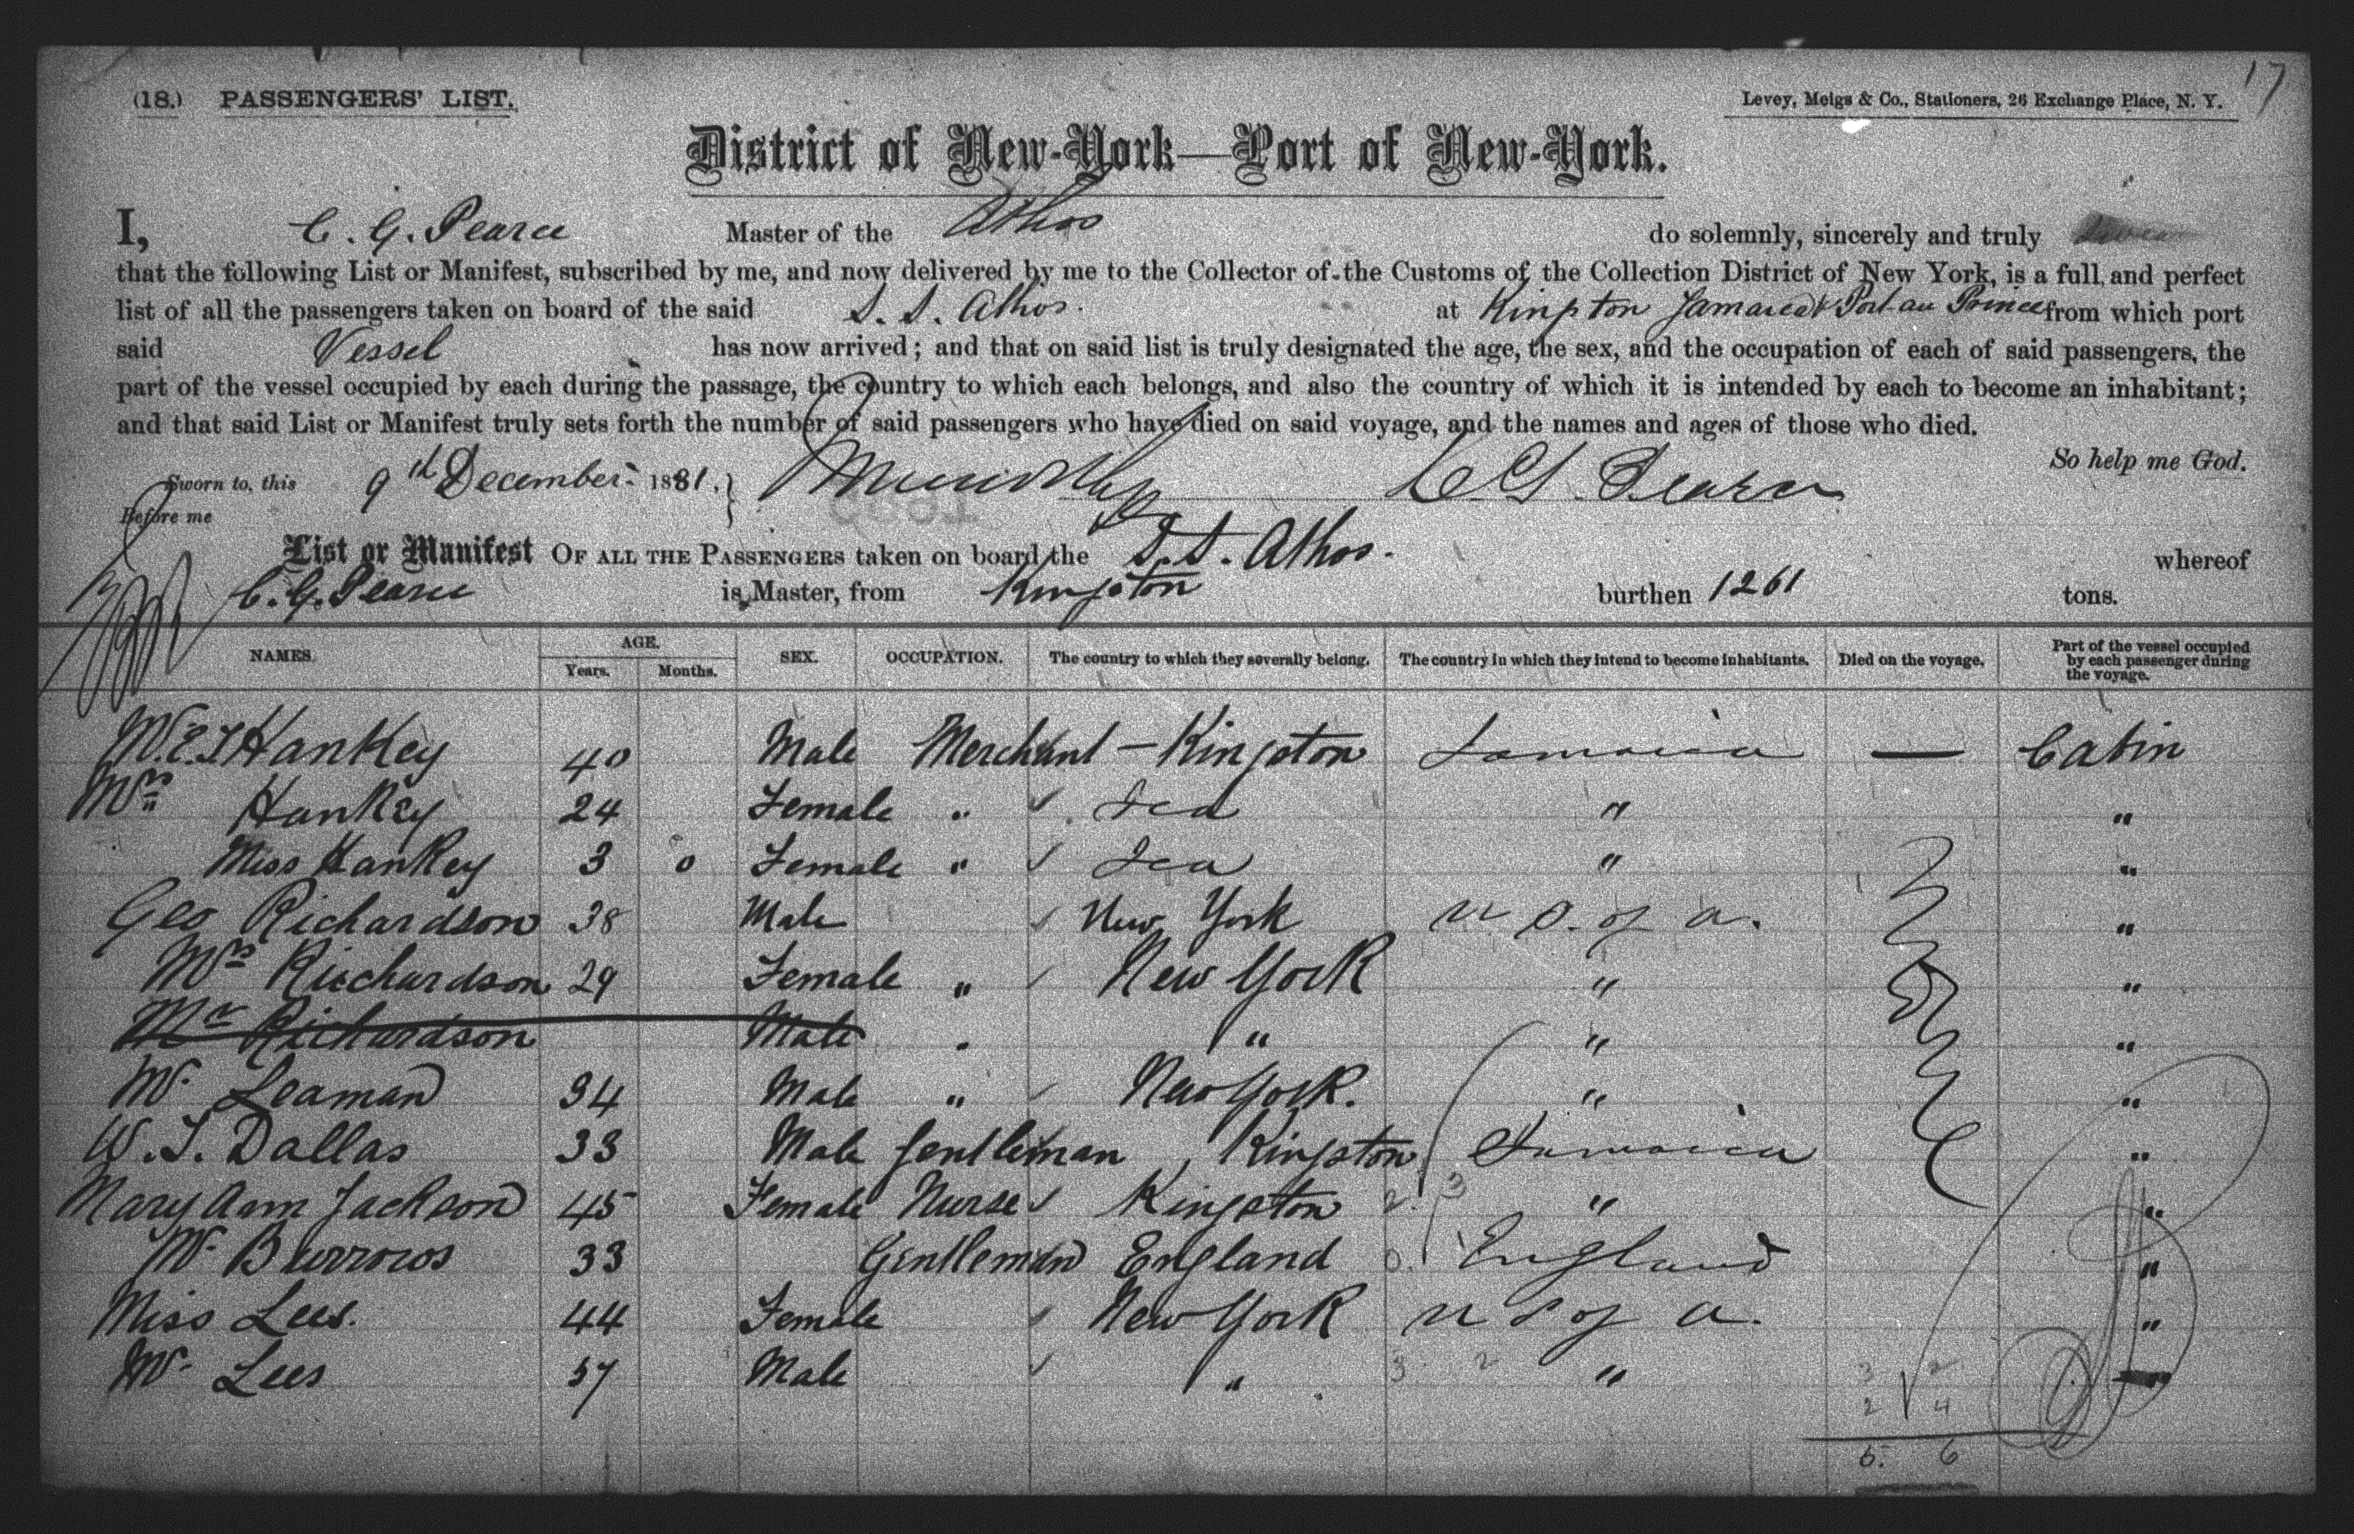 17
(18.) PASSENGERS' LIST. Levey, Meigs & Co., Stationers, 26 Exchange Place, N. Y.
District of New-York—Port of New-York.
I, C. G. Pearce Master of the Athos do solemnly, sincerely and truly
that the following List or Manifest, subscribed by me, and now delivered by me to the Collector of the Customs of the Collection District of New York, is a full and perfect
list of all the passengers taken on board of the said S. S. Athos. at Kingston Jamaica & Port au Prince from which port
said Vessel has now arrived; and that on said list is truly designated the age, the sex, and the occupation of each of said passengers, the
part of the vessel occupied by each during the passage, the country to which each belongs, and also the country of which it is intended by each to become an inhabitant;
and that said List or Manifest truly sets forth the number of said passengers who have died on said voyage, and the names and ages of those who died.
So help me God.
Sworn to, this 9th December 1881. C G Pearce
Before me
List or Manifest OF ALL THE PASSENGERS taken on board the S.S. Athos. whereof
C. G. Pearce is Master, from Kingston burthen 1261 tons.
NAMES. AGE. Years. Months. SEX. OCCUPATION. The country to which they severally belong. The country in which they intend to become inhabitants. Died on the voyage. Part of the vessel occupied by each passenger during the voyage.
Hankey 40 Male Merchant — Kingston Jamaica — Cabin
Mrs Hankey 24 Female " " "
Miss Hankey 3 0 Female " " "
Geo Richardson 38 Male New York U S. of A. "
Mrs Richardson 29 Female " New York " "
Mr Richardson Male " " " "
Mr Leaman 34 Male " New York. " "
W. S. Dallas 33 Male Gentleman Kingston Jamaica "
Mary Ann Jackson 45 Female Nurse Kingston " "
Mr Burrows 33 Gentleman England England "
Miss Lees. 44 Female New York U S of A. "
Mr Lees 37 Male " " "
3 2
2 4
5. 6